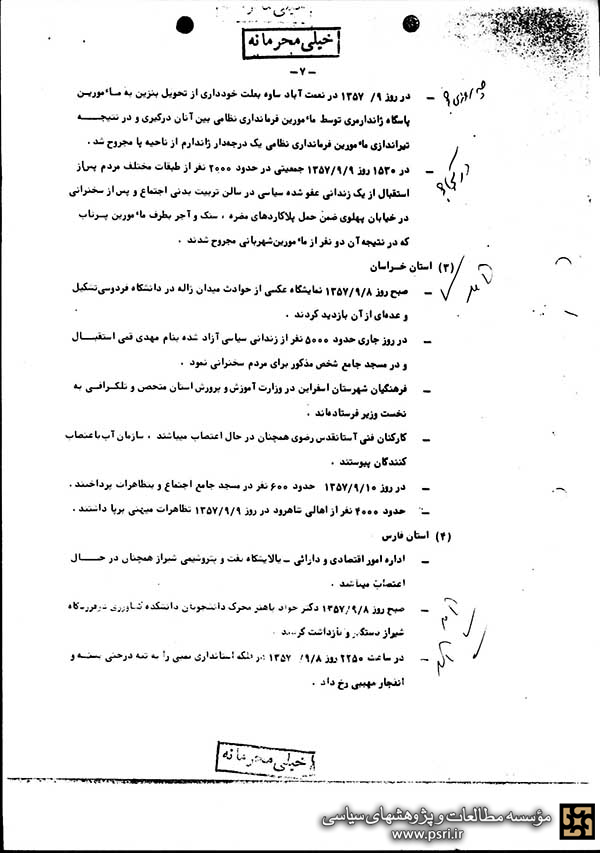 خیلی محرمانه
-۷-
- در روز ۹/ ۱۳۵۷ در نعمت آباد ساوه بعلت خودداری از تحویل بنزین به مأمورین
پاسگاه ژاندارمری توسط مأمورین فرمانداری نظامی بین آنان درگیری و در نتیجه
تیراندازی مأمورین فرمانداری نظامی یک درجه‌دار ژاندارم از ناحیه پا مجروح شد .
- در ۱۵۳۰ روز ۱۳۵۷/۹/۹ جمعیتی در حدود ۲۰۰۰ نفر از طبقات مختلف مردم پس‌از
استقبال از یک زندانی عفو شده سیاسی در سالن تربیت بدنی اجتماع و پس‌از سخنرانی
در خیابان پهلوی ضمن حمل پلاکاردهای مضره ، سنگ و آجر بطرف مأمورین پرتاب
که در نتیجه آن دو نفر از مأمورین شهربانی مجروح شدند .
(۳) استان خراسان
- صبح روز ۱۳۵۷/۹/۸ نمایشگاه عکسی از حوادث میدان ژاله در دانشگاه فردوسی تشکیل
و عده‌ای از آن بازدید کردند .
- در روز جاری حدود ۵۰۰۰ نفر از زندانی سیاسی آزاد شده بنام مهدی قمی استقبال
و در مسجد جامع شخص مذکور برای مردم سخنرانی نمود .
- فرهنگیان شهرستان اسفراین در وزارت آموزش و پرورش استان متحصن و تلگرافی به
نخست وزیر فرستاده‌اند .
- کارکنان فنی آستانقدس رضوی همچنان در حال اعتصاب میباشند ، سازمان آب‌باعتصاب
کنندگان پیوستند .
- در روز ۱۳۵۷/۹/۱۰ حدود ۶۰۰ نفر در مسجد جامع اجتماع و بتظاهرات پرداختند .
- حدود ۴۰۰۰ نفر از اهالی شاهرود در روز ۱۳۵۷/۹/۹ تظاهرات میهنی برپا داشتند .
(۴) استان فارس
- اداره امور اقتصادی و دارائی - پالایشگاه نفت و پتروشیمی شیراز همچنان در حال
اعتصاب میباشند .
- صبح روز ۱۳۵۷/۹/۸ دکتر جواد باهنر محرک دانشجویان دانشکده کشاورزی در فرودگاه
شیراز دستگیر و بازداشت گردید .
- در ساعت ۲۲۵۰ روز ۹/۸/ ۱۳۵۷ در فلکه استانداری بمبی را به تنه درختی بسته و
انفجار مهیبی رخ داد .
خیلی محرمانه
مؤسسه مطالعات و پژوهشهای سیاسی
www.psri.ir